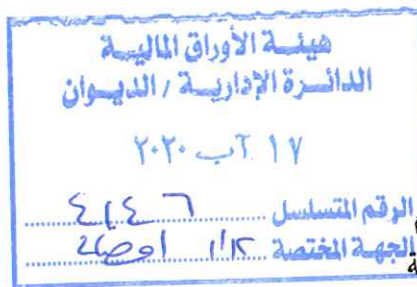 هيئة الأوراق المالية
الدائرة الإدارية / الديوان
١٧ آب ٢٠٢٠
الرقم المتسلسل ٤١٤٦
الجهة المختصة